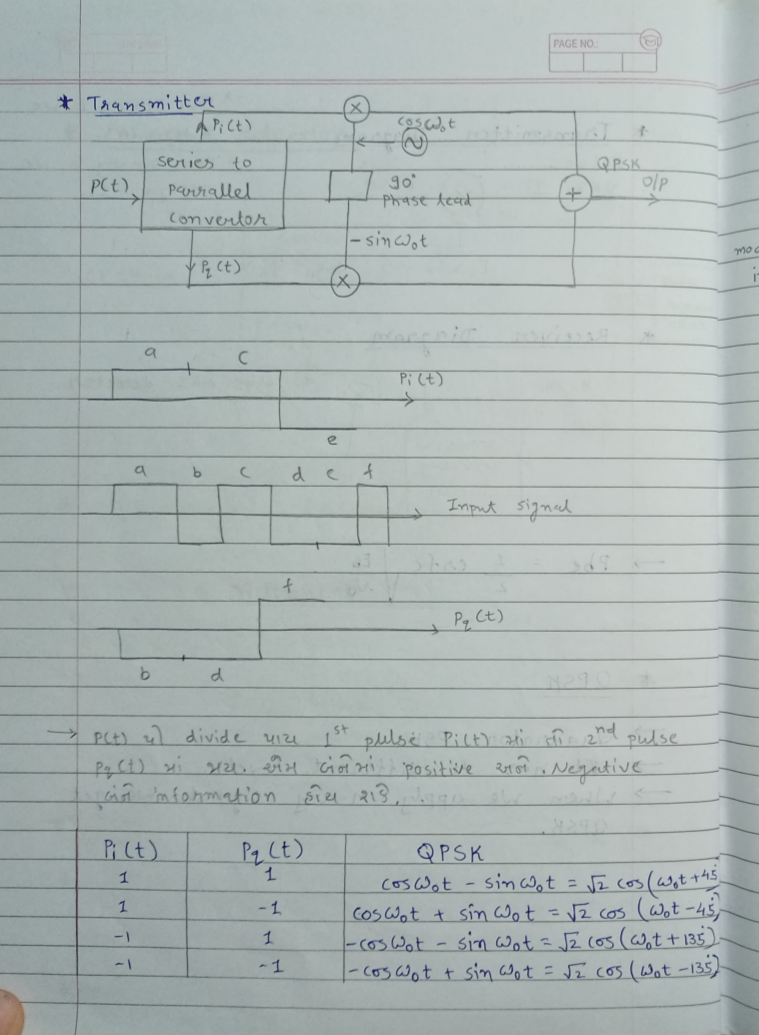 PAGE NO.:
* Transmitter
Pi(t)
cosω₀t
series to
parrallel
convertor
P(t)
90°
phase lead
QPSK
O/P
-sinω₀t
Pq(t)
a c
Pi(t)
e
a b c d e f
Input signal
f
Pq(t)
b d
→ P(t) થી divide થાય 1st pulse Pi(t) માં તો 2nd pulse
Pq(t) માં જાય. એમ બંનેમાં positive અને Negative
બંને information હોય શકે.
Pi(t) Pq(t) QPSK
1 1 cosω₀t - sinω₀t = √2 cos(ω₀t+45°
1 -1 cosω₀t + sinω₀t = √2 cos (ω₀t-45°)
-1 1 -cosω₀t - sinω₀t = √2 cos(ω₀t+135°)
-1 -1 -cosω₀t + sinω₀t = √2 cos(ω₀t-135°)